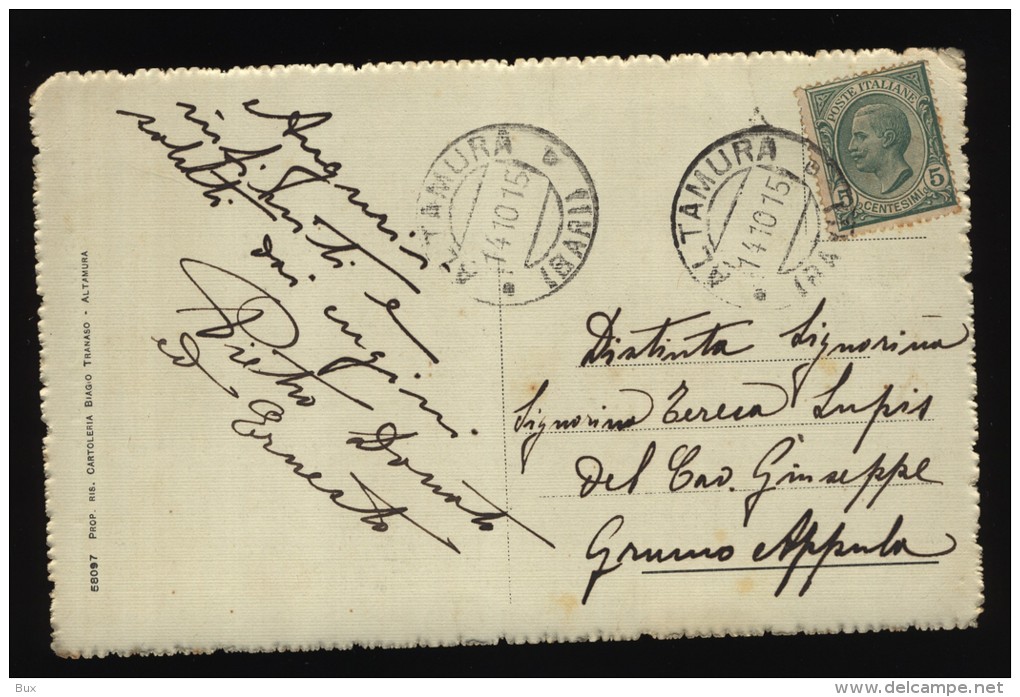 Auguri
infiniti e
saluti dai cugini
Pietro Donato
ed Ernesto
ALTAMURA
14.10.15
(BARI)
ALTAMURA
14.10.15
(BARI)
POSTE ITALIANE
5 5
CENTESIMI
Distinta Signorina
Signorina Teresa Lupis
del Cav. Giuseppe
Grumo Appula
58097 PROP. RIS. CARTOLERIA BIAGIO TRANASO - ALTAMURA
Bux
www.delcampe.net